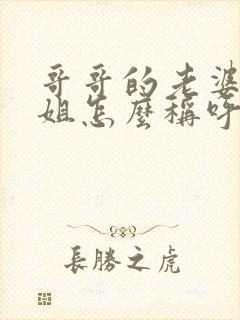 哥哥的老婆
姐怎麼稱呼
長勝之虎